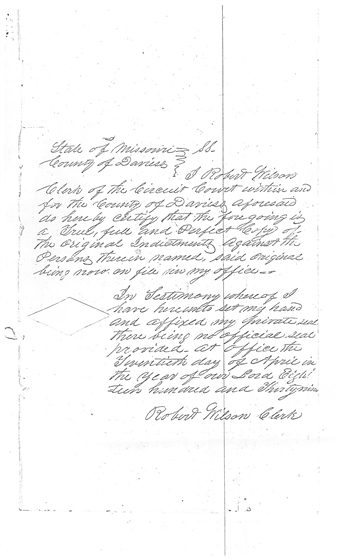 State of Missouri } SS.
County of Daviess }
I Robert Wilson
Clerk of the Circuit Court within and
for the County of Daviess aforesaid
do hereby Certify that the foregoing is
a True, full and Perfect Copy of
the Original Indictments against the
Persons therein named, said original
being now on file in my office
In Testimony whereof I
have hereunto set my hand
and affixed my private seal
there being no official seal
provided at office the
Twentieth day of April in
the Year of our Lord Eigh
teen hundred and Thirtynine
Robert Wilson Clerk